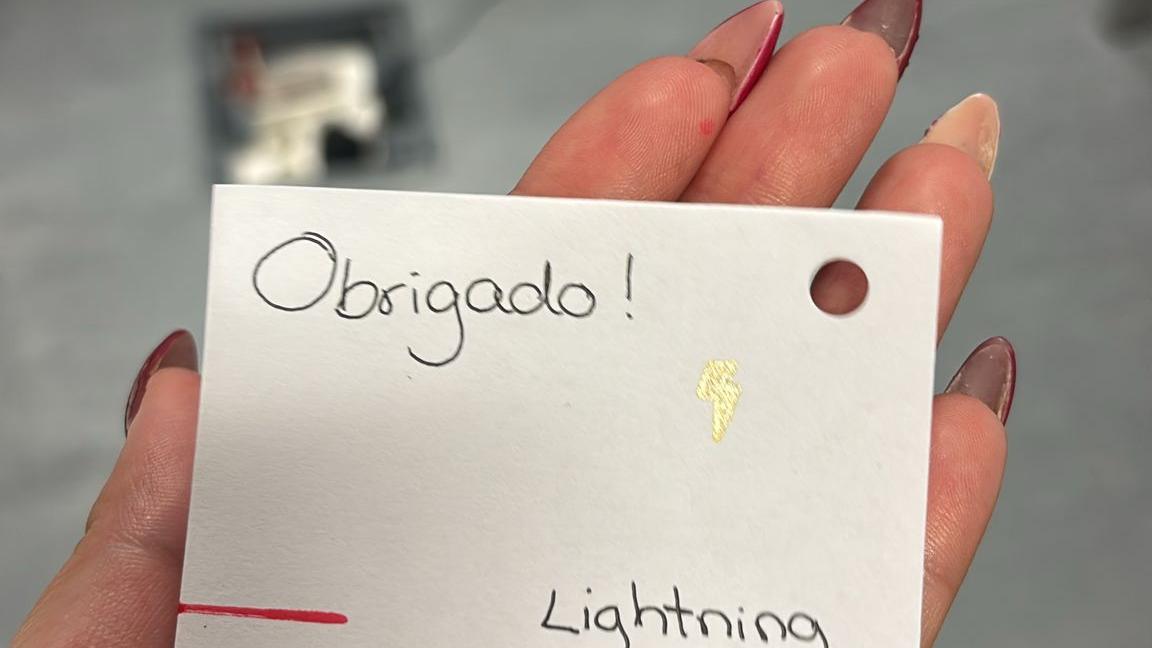 Obrigado!
Lightning